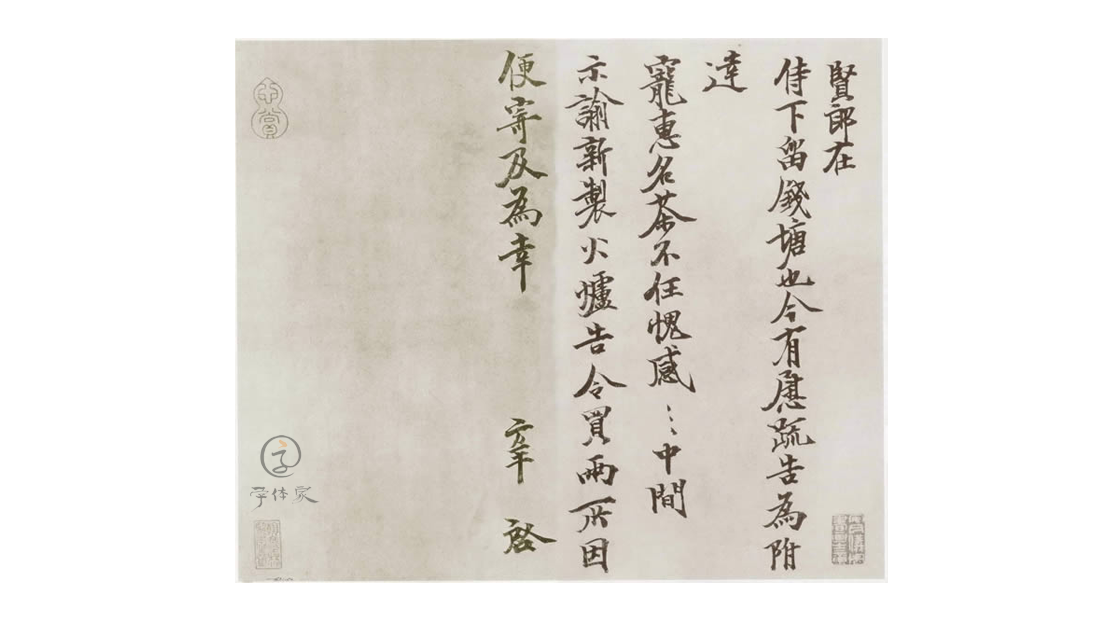 賢郎在
侍下留錢塘也今有慰疏告為附
達
寵惠名茶不任愧感〻中間
示諭新製火爐告令買兩所因
便寄及為幸
啓
字体家